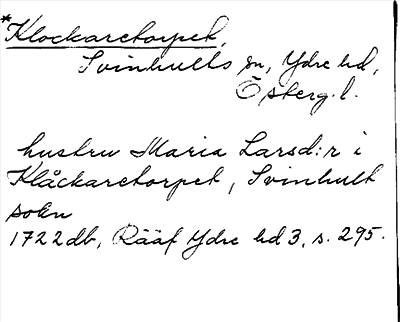 *Klockaretorpet,
Svinhults sn, Ydre hd,
Österg. l.
hustru Maria Larsd:r i
Klåckaretorpet, Svinhult
sokn
1722 db, Rääf Ydre hd 3, s. 295.